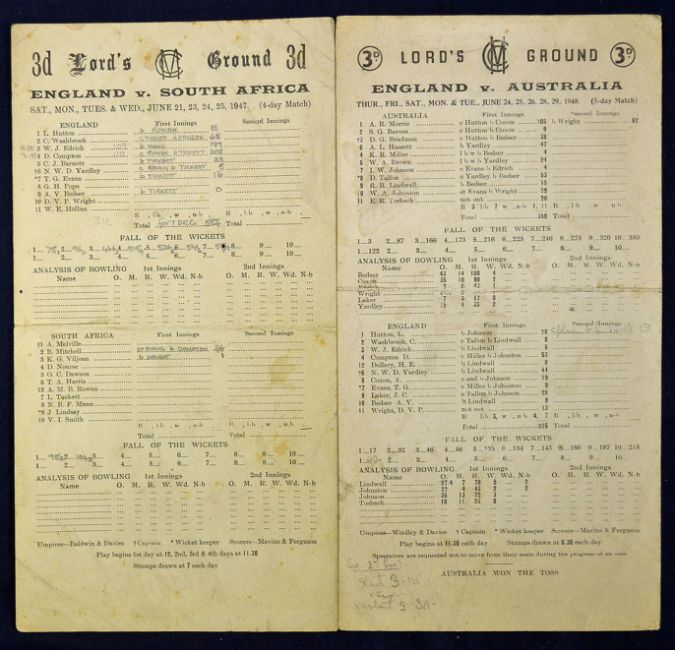 3d Lord's Ground 3d
ENGLAND v. SOUTH AFRICA
SAT., MON., TUES. & WED., JUNE 21, 23, 24, 25, 1947. (4-day Match)
ENGLAND First Innings Second Innings
1 L. Hutton b ROWAN 18
2 C. Washbrook 65
3 W. J. Edrich b MANN 189
4 D. Compton 208
5 C. J. Barnett b TUCKETT 33
*6 N. W. D. Yardley c ROWAN b TUCKETT 5
*7 T. G. Evans b TUCKETT 16
8 G. H. Pope
9 A. V. Bedser b TUCKETT 0
10 D. V. P. Wright
11 W. E. Hollies
B , l-b , w , n-b , B , l-b , w , n-b
Total Total
FALL OF THE WICKETS
ANALYSIS OF BOWLING 1st Innings 2nd Innings
Name O. M. R. W. Wd. N-b O. M. R. W. Wd. N-b
SOUTH AFRICA First Innings Second Innings
†1 A. Melville
2 B. Mitchell st EVANS b COMPTON 46
3 K. G. Viljoen b WRIGHT 1
4 D. Nourse
5 O. C. Dawson
6 T. A. Harris
13 A. M. B. Rowan
7 L. Tuckett
8 N. B. F. Mann
*9 J. Lindsay
10 V. I. Smith
B , l-b , w , n-b , B , l-b , w , n-b
Total Total
FALL OF THE WICKETS
1— 2— 3— 4— 5— 6— 7— 8— 9— 10—
1— 2— 3— 4— 5— 6— 7— 8— 9— 10—
ANALYSIS OF BOWLING 1st Innings 2nd Innings
Name O. M. R. W. Wd. N-b O. M. R. W. Wd. N-b
Umpires—Baldwin & Davies † Captain * Wicket-keeper Scorers—Mavins & Ferguson
Play begins 1st day at 12, 2nd, 3rd & 4th days at 11.30
Stumps drawn at 7 each day
3d LORD'S GROUND 3d
ENGLAND v. AUSTRALIA
THUR., FRI., SAT., MON. & TUE., JUNE 24, 25, 26, 28, 29, 1948. (5-day Match)
AUSTRALIA First Innings Second Innings
1 A. R. Morris c Hutton b Coxon 105 b Wright 62
2 S. G. Barnes c Hutton b Coxon 0
†3 D. G. Bradman c Hutton b Bedser 38
5 A. L. Hassett b Yardley 47
4 K. R. Miller l b w b Bedser 4
6 W. A. Brown l b w b Yardley 24
7 I. W. Johnson c Evans b Edrich 4
*8 D. Tallon c Yardley b Bedser 53
9 R. R. Lindwall b Bedser 15
10 W. A. Johnston st Evans b Wright 29
11 E. R. Toshack not out 20
B 3, l-b 7, w , n-b 1, B , l-b , w , n-b
Total 350 Total
FALL OF THE WICKETS
1—3 2—87 3—166 4—173 5—216 6—225 7—246 8—275 9—320 10—350
1—122 2— 3— 4— 5— 6— 7— 8— 9— 10—
ANALYSIS OF BOWLING 1st Innings 2nd Innings
Name O. M. R. W. Wd. N-b O. M. R. W. Wd. N-b
Bedser 43 14 100 4
Coxon 35 10 90 2
Edrich 8 0 43 1
Wright
Laker 7 3 17 0
Yardley 15 4 35 2
ENGLAND First Innings Second Innings
1 Hutton, L. b Johnson 20
2 Washbrook, C. c Tallon b Lindwall 8
3 W. J. Edrich b Lindwall 5
4 Compton D. c Miller b Johnston 53
12 Dollery, H. E. b Lindwall 0
†6 N. W. D. Yardley b Lindwall 44
8 Coxon, A. c and b Johnson 19
*7 Evans, T. G. c Miller b Johnston 9
9 Laker, J. C. c Tallon b Johnson 28
10 Bedser A. V. b Lindwall 9
11 Wright, D. V. P. not out 13
B , l-b 3, w , n-b 4, 7 B , l-b , w , n-b
Total 215 Total
FALL OF THE WICKETS
1—17 2—32 3—46 4—46 5—133 6—134 7—145 8—186 9—197 10—215
1— 2— 3— 4— 5— 6— 7— 8— 9— 10—
ANALYSIS OF BOWLING 1st Innings 2nd Innings
Name O. M. R. W. Wd. N-b O. M. R. W. Wd. N-b
Lindwall 27.4 7 70 5 2
Johnston 22 4 43 2 2
Johnson 35 13 72 3
Toshack 18 11 23 0
Umpires—Woolley & Davies † Captain * Wicket-keeper Scorers—Mavins & Ferguson
Play begins at 11.30 each day Stumps drawn at 6.30 each day
Spectators are requested not to move from their seats during the progress of an over
AUSTRALIA WON THE TOSS